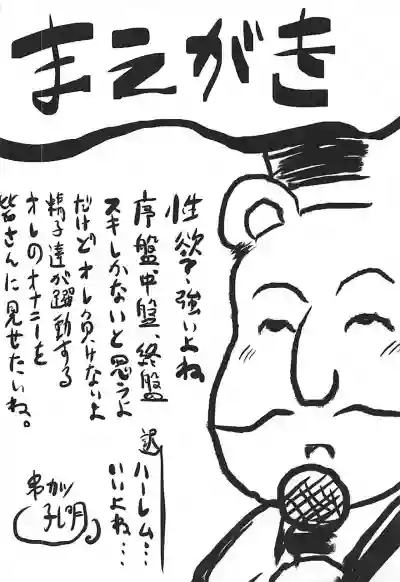 まえがき
性欲、強いよね
序盤、中盤、終盤
スキしかないと思うよ
だけどオレ負けないよ
精子達が躍動する
オレのオナニーを
皆さんに見せたいね。
逆ハーレム…
いいよね…